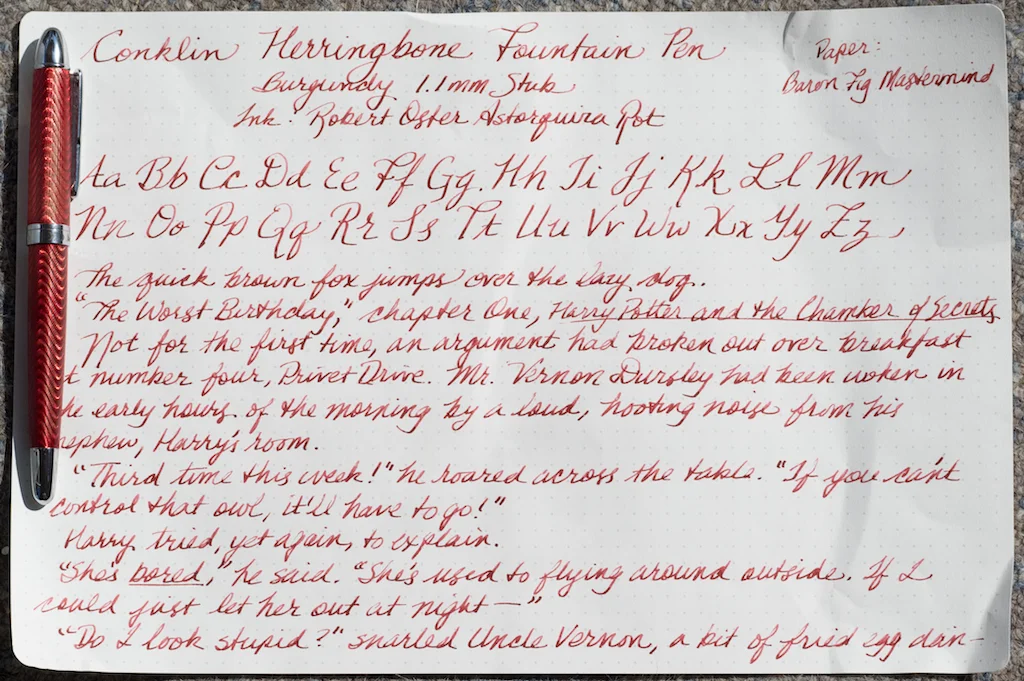 Conklin Herringbone Fountain Pen
Paper:
Burgundy 1.1mm Stub
Baron Fig Mastermind
Ink: Robert Oster Astorquiza Rot
Aa Bb Cc Dd Ee Ff Gg Hh Ii Jj Kk Ll Mm
Nn Oo Pp Qq Rr Ss Tt Uu Vv Ww Xx Yy Zz
The quick brown fox jumps over the lazy dog.
"The Worst Birthday," chapter One, Harry Potter and the Chamber of Secrets
Not for the first time, an argument had broken out over breakfast
t number four, Privet Drive. Mr. Vernon Dursley had been woken in
he early hours of the morning by a loud, hooting noise from his
nephew, Harry's room.
"Third time this week!" he roared across the table. "If you can't
control that owl, it'll have to go!"
Harry tried, yet again, to explain.
"She's bored," he said. "She's used to flying around outside. If I
could just let her out at night—"
"Do I look stupid?" snarled Uncle Vernon, a bit of fried egg dan-